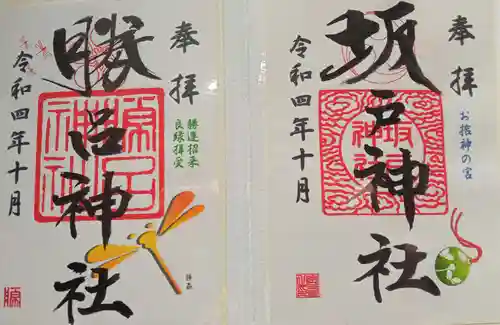 奉拝
坂戸神社
令和四年十月
お捻神の宮
奉拝
勝呂神社
令和四年十月
勝運招来
良縁拝受
勝呂神社